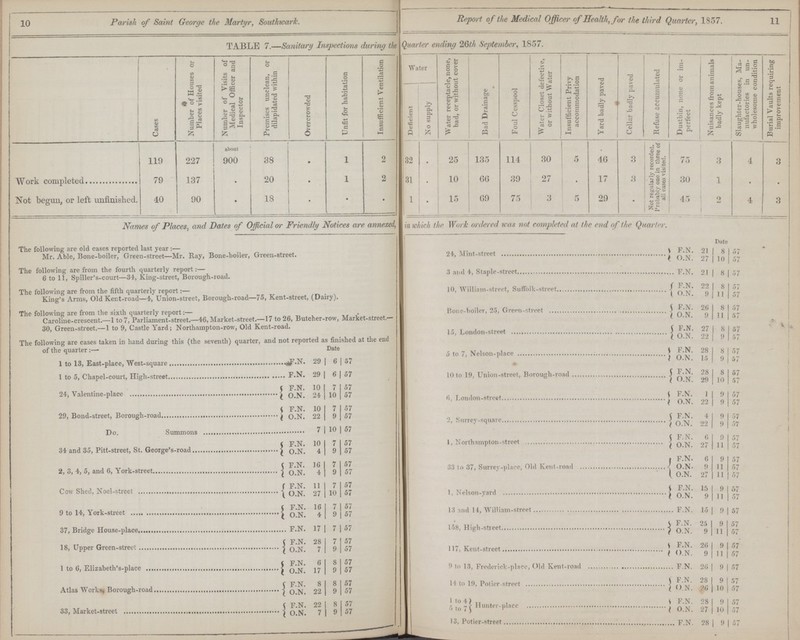 10 Parish of Saint George the Martyr, Southwark.
TABLE 7.—Sanitary Inspections during the
Cases | Number of Houses or Places visited * | Number of Visits of Medical Officer and Inspector | Premises unclean, or dilapidated within | Overcrowded | Unfit for habitation | Insufficient Ventilation
119 227 about 900 38 . 1 2
Work completed 79 137 . 20 . 1 2
Not begun, or left unfinished. 40 90 . 18 . . .
Names of Places, and Dates of Official or Friendly Notices are annexed,
The following are old cases reported last year:—
Mr. Able, Bone-boiler, Green-street—Mr. Ray, Bone-boiler, Green-street.
The following are from the fourth quarterly report:—
6 to 11, Spiller's-court—34, King-street, Borough-road.
The following are from the fifth quarterly report:—
King's Arms, Old Kent-road—4, Union-street, Borough-road—75, Kent-street, (Dairy).
The following are from the sixth quarterly report:—
Caroline-crescent.—1 to 7, Parliament-street.—46, Market-street.—17 to 26, Butcher-row, Market-street.—
30, Green-street.—1 to 9, Castle Yard; Northampton-row, Old Kent-road.
The following are cases taken in hand during this (the seventh) quarter, and not reported as finished at the end
of the quarter:— Date
1 to 13, East-place, West-square F.N. 29 | 6 | 57
1 to 5, Chapel-court, High-street F.N. 29 | 6 | 57
24, Valentine-place { F.N. 10 | 7 | 57
{ O.N. 24 | 10 | 57
29, Bond-street, Borough-road { F.N. 10 | 7 | 57
{ O.N. 22 | 9 | 57
Do. Summons 7 | 10 | 57
34 and 35, Pitt-street, St. George's-road { F.N. 10 | 7 | 57
{ O.N. 4 | 9 | 57
2, 3, 4, 5, and 6, York-street { F.N. 16 | 7 | 57
{ O.N. 4 | 9 | 57
Cow Shed, Noel-street { F.N. 11 | 7 | 57
{ O.N. 27 | 10 | 57
9 to 14, York-street { F.N. 16 | 7 | 57
{ O.N. 4 | 9 | 57
37, Bridge House-place F.N. 17 | 7 | 57
18, Upper Green-street { F.N. 28 | 7 | 57
{ O.N. 7 | 9 | 57
1 to 6, Elizabeth's-place { F.N. 6 | 8 | 57
{ O.N. 17 | 9 | 57
Atlas Works, Borough-road { F.N. 8 | 8 | 57
{ O.N. 22 | 9 | 57
33, Market-street { F.N. 22 | 8 | 57
{ O.N. 7 | 9 | 57
Report of the Medical Officer of Health, for the third Quarter, 1857. 11
Quarter ending 26th September, 1857.
Water
Deficient | No supply | Water receptacle, none, bad, or without cover | Bad Drainage | Foul Cesspool | Water Closet defective, or without Water | Insufficient Privy accommodation | Yard badly paved | Cellar badly paved * | Refuse accumulated | Dustbin, none or imperfect | Nuisances from animals badly kept | Slaughter-houses, Manufactories in unwholesome condition | Burial Vaults requiring improvement
32 . 25 135 114 30 5 46 3 75 3 4 3
Not regularly recorded. Probably one in three of all cases visited.
31 . 10 66 39 27 . 17 3 30 1 . .
1 . 15 69 75 3 5 29 . 45 2 4 3
in which the Work ordered was not completed at the end of the Quarter.
Date
24, Mint-street { F.N. 21 | 8 | 57
{ O.N. 27 | 10 | 57
3 and 4, Staple-street F.N. 21 | 8 | 57
10, William-street, Suffolk-street { F.N. 22 | 8 | 57
{ O.N. 9 | 11 | 57
Bone-boiler, 25, Green-street { F.N. 26 | 8 | 57
{ O.N. 9 | 11 | 57
15, London-street { F.N. 27 | 8 | 57
{ O.N. 22 | 9 | 57
5 to 7, Nelson-place { F.N. 28 | 8 | 57
{ O.N. 15 | 9 | 57
10 to 19, Union-street, Borough-road { F.N. 28 | 8 | 57
{ O.N. 29 | 10 | 57
6, London-street { F.N. 1 | 9 | 57
{ O.N. 22 | 9 | 57
2, Surrey-square { F.N. 4 | 9 | 57
{ O.N. 22 | 9 | 57
1, Northampton-street { F.N. 6 | 9 | 57
{ O.N. 27 | 11 | 57
33 to 37, Surrey-place, Old Kent-road { F.N. 6 | 9 | 57
{ O.N. 9 | 11 | 57
{ O.N. 27 | 11 | 57
1, Nelson-yard { F.N. 15 | 9 | 57
{ O.N. 9 | 11 | 57
13 and 14, William-street F.N. 15 | 9 | 57
158, High-street { F.N. 25 | 9 | 57
{ O.N. 9 | 11 | 57
117, Kent-street { F.N. 26 | 9 | 57
{ O.N. 9 | 11 | 57
9 to 13, Frederick-place, Old Kent-road F.N. 26 | 9 | 57
14 to 19, Potier-street { F.N. 28 | 9 | 57
{ O.N. 26 | 10 | 57
1 to 4 } Hunter-place { F.N. 28 | 9 | 57
5 to 7 } { O.N. 27 | 10 | 57
13, Potier-street F.N. 29 | 9 | 57